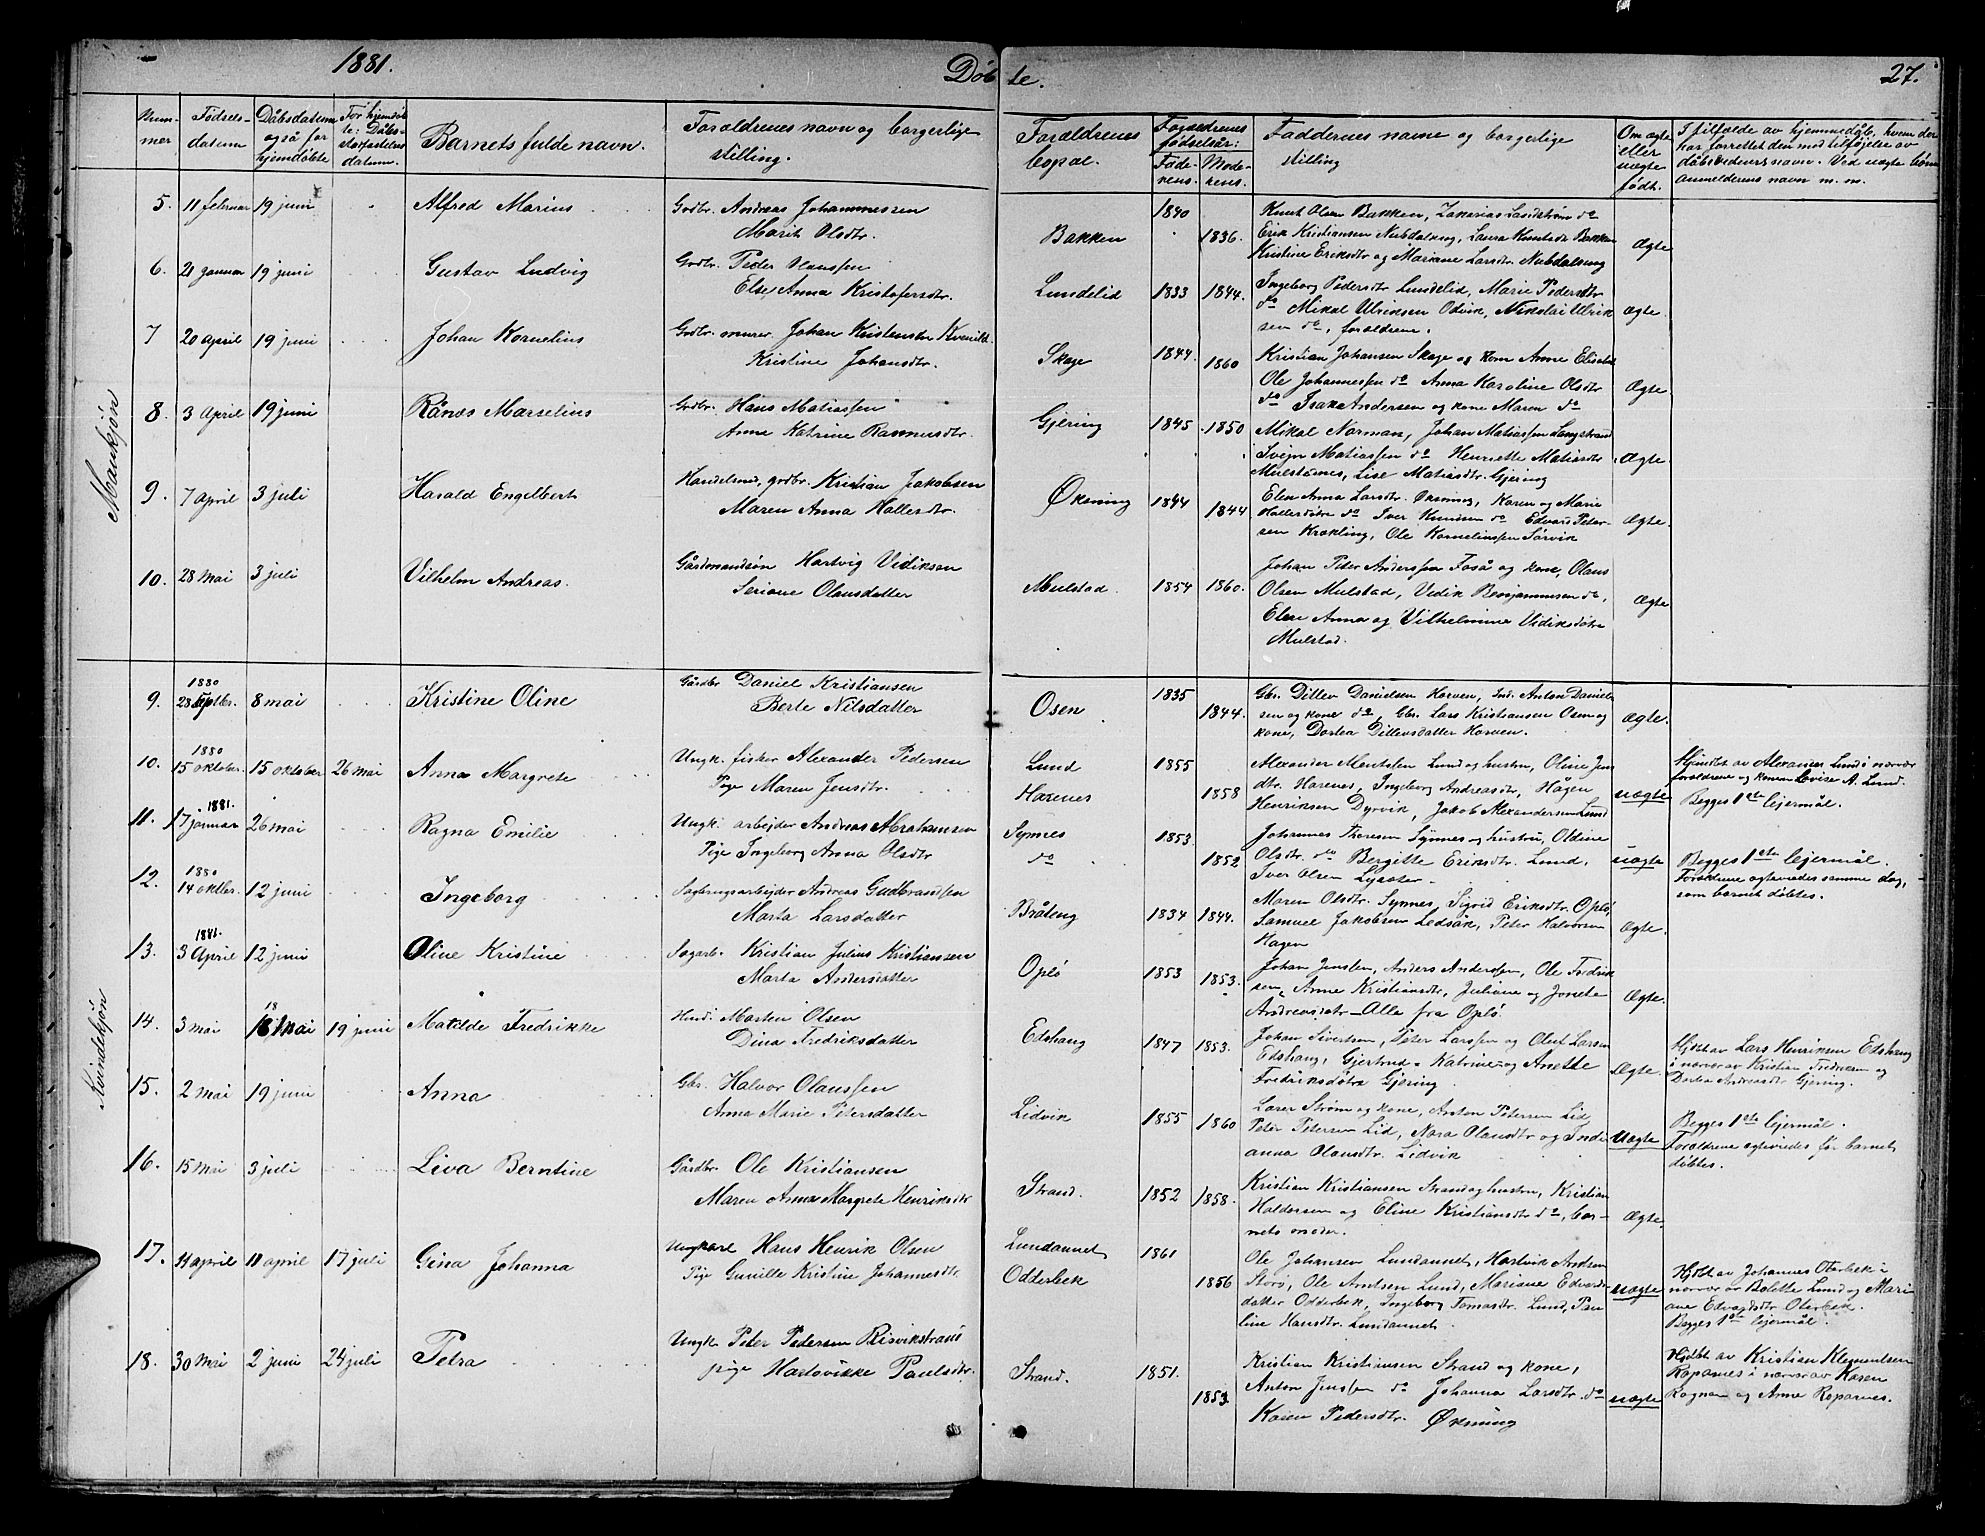 1881.
Døbte.
27.
Nummer
Fødselsdatum
Dåbsdatum også for hjemdøbte
For hjemdøbte: Dåbs-Stadfæstelses datum.
Barnets fulde navn.
Forældrenes navn og borgerlige stilling.
Forældrenes bopæl.
Forældrenes fødselsår:
Faderens.
Moderens.
Faddernes navne og borgerlige stilling
Om ægte eller uægte født.
I tilfælde av hjemmedåb, hvem der har forrettet den med tilføjelse av dåbsvidners navn. Ved uægte børn anmelderens navn m. m.
Mankjøn
5. 11 februar 19 juni Alfred Marius Gbr. Andreas Johannessen
Marit Olsdtr.
Bakken 1840 1836.
Knut Olsen Bakken, Zakarias do
Erik Kristiansen Nubdalseng, Laura Knutsdtr Bakken
Kristine Eriksdtr og Mariane Larsdtr Nubdalseng
Ægte
6. 21 januar 19 juni Gustav Ludvig Gdbr. Peder Hanssen
Else Anna Kristofersdtr.
Lundelid 1833 1844.
Ingeborg Pedersdtr Lundelid, Marie Pedersdtr
do Mikal Ulriksen Odvik, Nikolai Ulrik
sen do, forældrene.
Ægte.
7 20 April 19 juni Johan Kornelius Gdbr. murer. Johan Kristensen Kvenild.
Kristine Johansdtr.
Skage 1844. 1860
Kristian Johansen Skage og kone Anne Elisabet
Ole Johannessen do Anna Karoline Olsdtr
do Isak Andersen og kone Maren do
Ægte.
8. 3 April 19 juni Rånes Marselius Gdbr. Hans Matiassen
Anne Katrine Rasmusdtr.
Gjering 1845 1850
Mikal Norman, Johan Matiassen Langstrand
Svejn Matiassen do Henriette Matiasdtr
Mulstanes, Lise Matiasdtr. Gjering
Ægte.
9. 7 April 3 juli Harald Engelbert Handelsmd, gdbr. Kristian Jakobsen
Maren Anna Hallersdtr.
Øksning 1844 1844
Elen Anna Larsdtr. Øksning, Karen og Marie
Hallersdøtre do Iver Knudsen do Edvard Peter-
sen Krækling, Ole Korneliussen Sørvik
Ægte.
10. 28 Mai 3 juli Vilhelm Andreas. Gårdmandssøn Hartvig Vidiksen
Seriane Olausdatter
Mulstad. 1854 1860.
Johan Peter Anderssen Foså og kone, Olaus
Olsen Mulstad, Vidik Benjaminsen do,
Elen Anna og Vilhelmine Vidiksdøtre
Mulstad.
Ægte
Kvindekjøn
9. 1880 28 Septbr. 8 mai Kristine Oline Gårdbr Daniel Kristiansen
Berte Nilsdatter
Osen 1835 1844.
Gbr. Ditlev Danielsen Horven, Ind. Anton Daniel-
sen og kone do, Gbr. Lars Kristiansen Osen og
kone, Dortea Ditlevsdatter Horven.
Ægte.
10. 1880 15 oktober. 15 oktober 26 mai Anna Margrete Ungk. fisker Alexander Pedersen
Pige Maren Jensdtr.
Lund
Horenes 1855 1858
Alexander Mentsen Lund og hustru, Oline Jens
dtr. Horenes, Ingeborg Andreasdtr, Hågen
Henriksen Dyrvik, Jakob Alexandersen Lund
uægte
Hjmdbt av Alexander Lund i nærvær
forældrene og konen Lovise A. Lund.
Begges 1ste lejermål.
11. 1881. 17 januar 26 mai Ragna Emilie Ungk. arbejder Andreas Abrahamsen
Pige Ingeborg Anna Olsdtr
Synnes
do 1853. 1852
Johannes Thoresen Synnes og hustru, Oldine
Olsdtr. do Bergitte Eriksdtr. Lund,
Iver Olsen Lysøter.
uægte
Begges 1ste lejermål.
Forældrene ægteviedes samme dag,
som barnet døbtes.
12. 1880 14 oktbr. 12 juni Ingeborg Sagbrugsarbejder Andreas Gudbrandsen
Marta Larsdatter
Bråteng 1834 1844.
Maren Olsdtr. Synnes, Sigrid Eriksdtr. Oplø,
Samuel Jakobsen Ledsåk, Peter Halvorsen
Hagen
Ægte.
13. 1881. 3 April 12 juni Oline Kristine Sagarb. Kristian Julius Kristiansen
Marta Andersdatter
Oplø 1853 1853.
Johan Jenssen, Anders Anderssen, Ole Fredrik
sen, Anne Kristiansdtr, Juliane og Jonete
Andreasdtr. - Alle fra Oplø.
Ægte.
14. 3 mai 18 18 Mai 19 juni Matilde Fredrikke Husm. Morten Olsen
Dina Fredriksdatter
Edshaug 1847 1853.
Johan Sivertsen, Peter Larssen og Olert Larsen
Edshaug, Gjertrud - Katrine og Anette
Fredriksdøtre Gjering.
Ægte.
Hjdbt av Lars Henriksen Edshaug
i nærvær av Kristian Fredriksen og
Dortea Andreasdtr Gjering.
15. 2 mai 19 juni Anna Gbr. Halvor Olaussen
Anna Marie Petersdatter
Lidvik 1855 1860
Lorer Strøm og kone, Anton Petersen Lid,
Peter Petersen Lid, Nora Olausdtr og Inde
anna Olausdtr. Lidvik
uægte
Begges 1ste lejermål.
Forældrene ægteviedes før barnet
døbtes.
16. 15 mai 3 juli Liva Berntine Gårdbr. Ole Kristiansen
Maren Anna Margrete Henriksdtr
Strand. 1852 1858.
Kristian Kristiansen Strand og hustru, Kristian
Haldorsen og Eline Kristiansdtr do, bar-
nets moder.
Ægte.
17. 11 april 11 april 17 juli Gina Johanna Ungkarl Hans Henrik Olsen
Pige Gunille Kristine Johannesdtr.
Lundamnet
Odderbek 1861 1856
Ole Johansen Lundamnet, Hartvik Andersen
Storø, Ole Arntsen Lund, Mariane Edvards
datter Odderbek, Ingeborg Tomasdtr. Lund, Pau-
line Hansdtr. Lundamnet.
uægte
Hjdbt av Johannes Oterbek i
nærvær av Bolette Lund og Mari
ane Edvardsdtr Oterbek.
Begges 1ste lejermål.
18. 30 Mai 2 juni 24 juli Petra Ungk. Peter Pedersen Risvikstrand
pige Hartvikke Paulsdtr.
Strand. 1851. 1853
Kristian Kristiansen Strand og kone,
Anton Jenssen do Johanna Larsdtr. do
Karen Pedersdtr. Øksning
uægte
Hjdbt av Kristian Klementsen
Ropanes i nærvær av Karen
Ragna og Anne Ropanes.